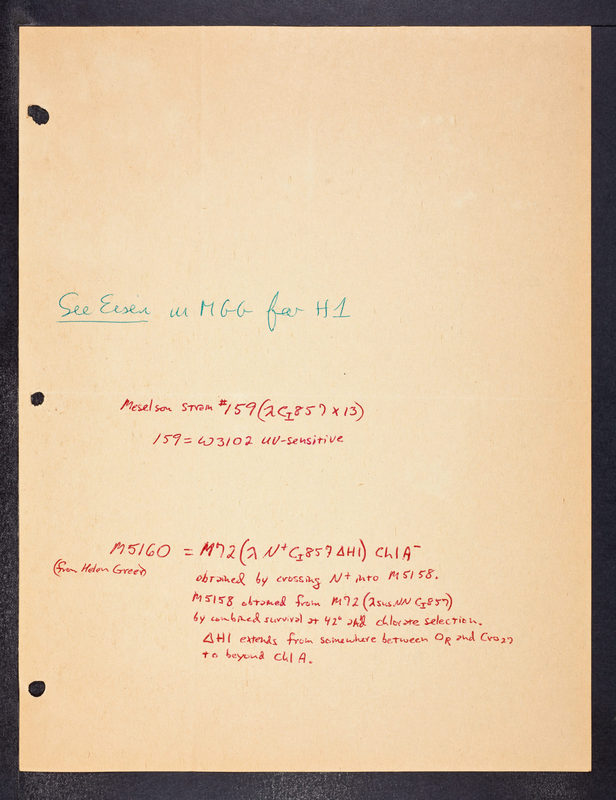 See Eisen in MGG for H1
Meselson strain #159 (λ CI857 x 13)
159 = W3102 UV-sensitive
M5160 = M72 (λ N+ CI857 ΔH1) ChlA-
(from Helen Greer)
obtained by crossing N+ into M5158.
M5158 obtained from M72 (λ sus NN CI857)
by combined survival at 42° and chlorate selection.
ΔH1 extends from somewhere between OR and Cro27
to beyond ChlA.